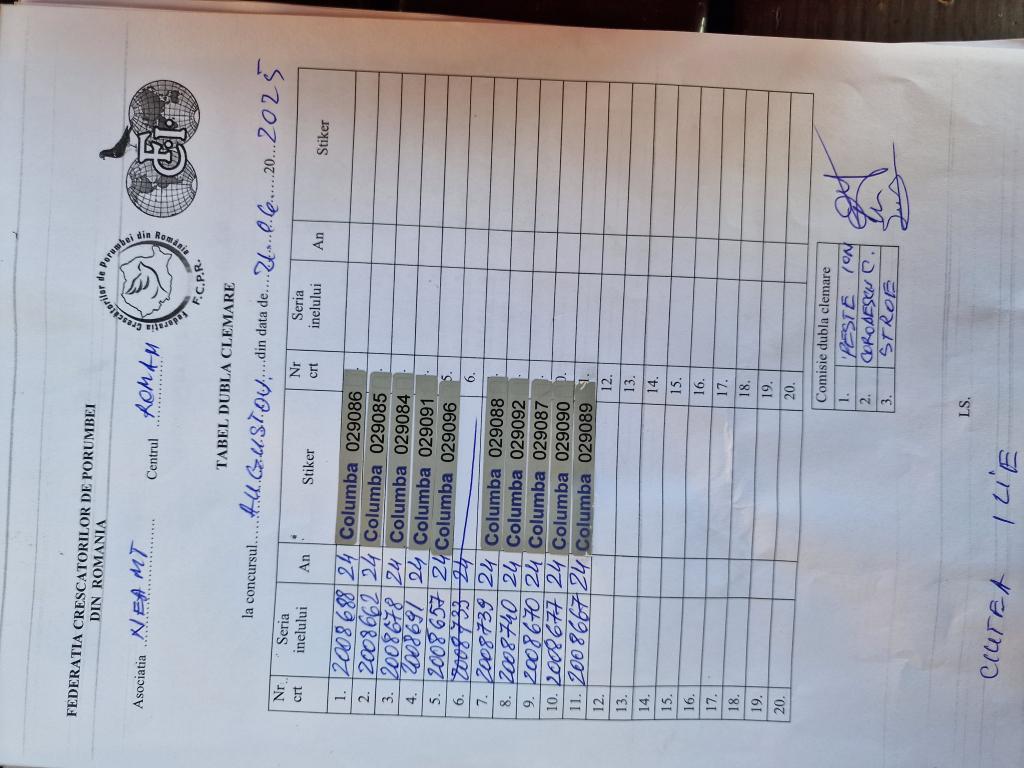 FEDERATIA CRESCATORILOR DE PORUMBEI
DIN ROMANIA
Federatia Crescatorilor de Porumbei din România
F.C.P.R.
F.C.I.
Asociatia NEAMT Centrul ROMAN
TABEL DUBLA CLEMARE
la concursul AUGUSTOV din data de 21.06. 20 2025
Nr. crt Seria inelului An Stiker Nr crt Seria inelului An Stiker
1. 2008688 24 Columba 029086
2. 2008662 24 Columba 029085
3. 2008678 24 Columba 029084
4. 2008691 24 Columba 029091
5. 2008657 24 Columba 029096 5.
6. 2008733 24 6.
7. 2008739 24 Columba 029088
8. 2008740 24 Columba 029092
9. 2008670 24 Columba 029087
10. 2008677 24 Columba 029090
11. 2008667 24 Columba 029089
12. 12.
13. 13.
14. 14.
15. 15.
16. 16.
17. 17.
18. 18.
19. 19.
20. 20.
Comisie dubla clemare
1. PESTE ION
2. CORODESCU C.
3. STROE
LS.
CIUTEA ILIE